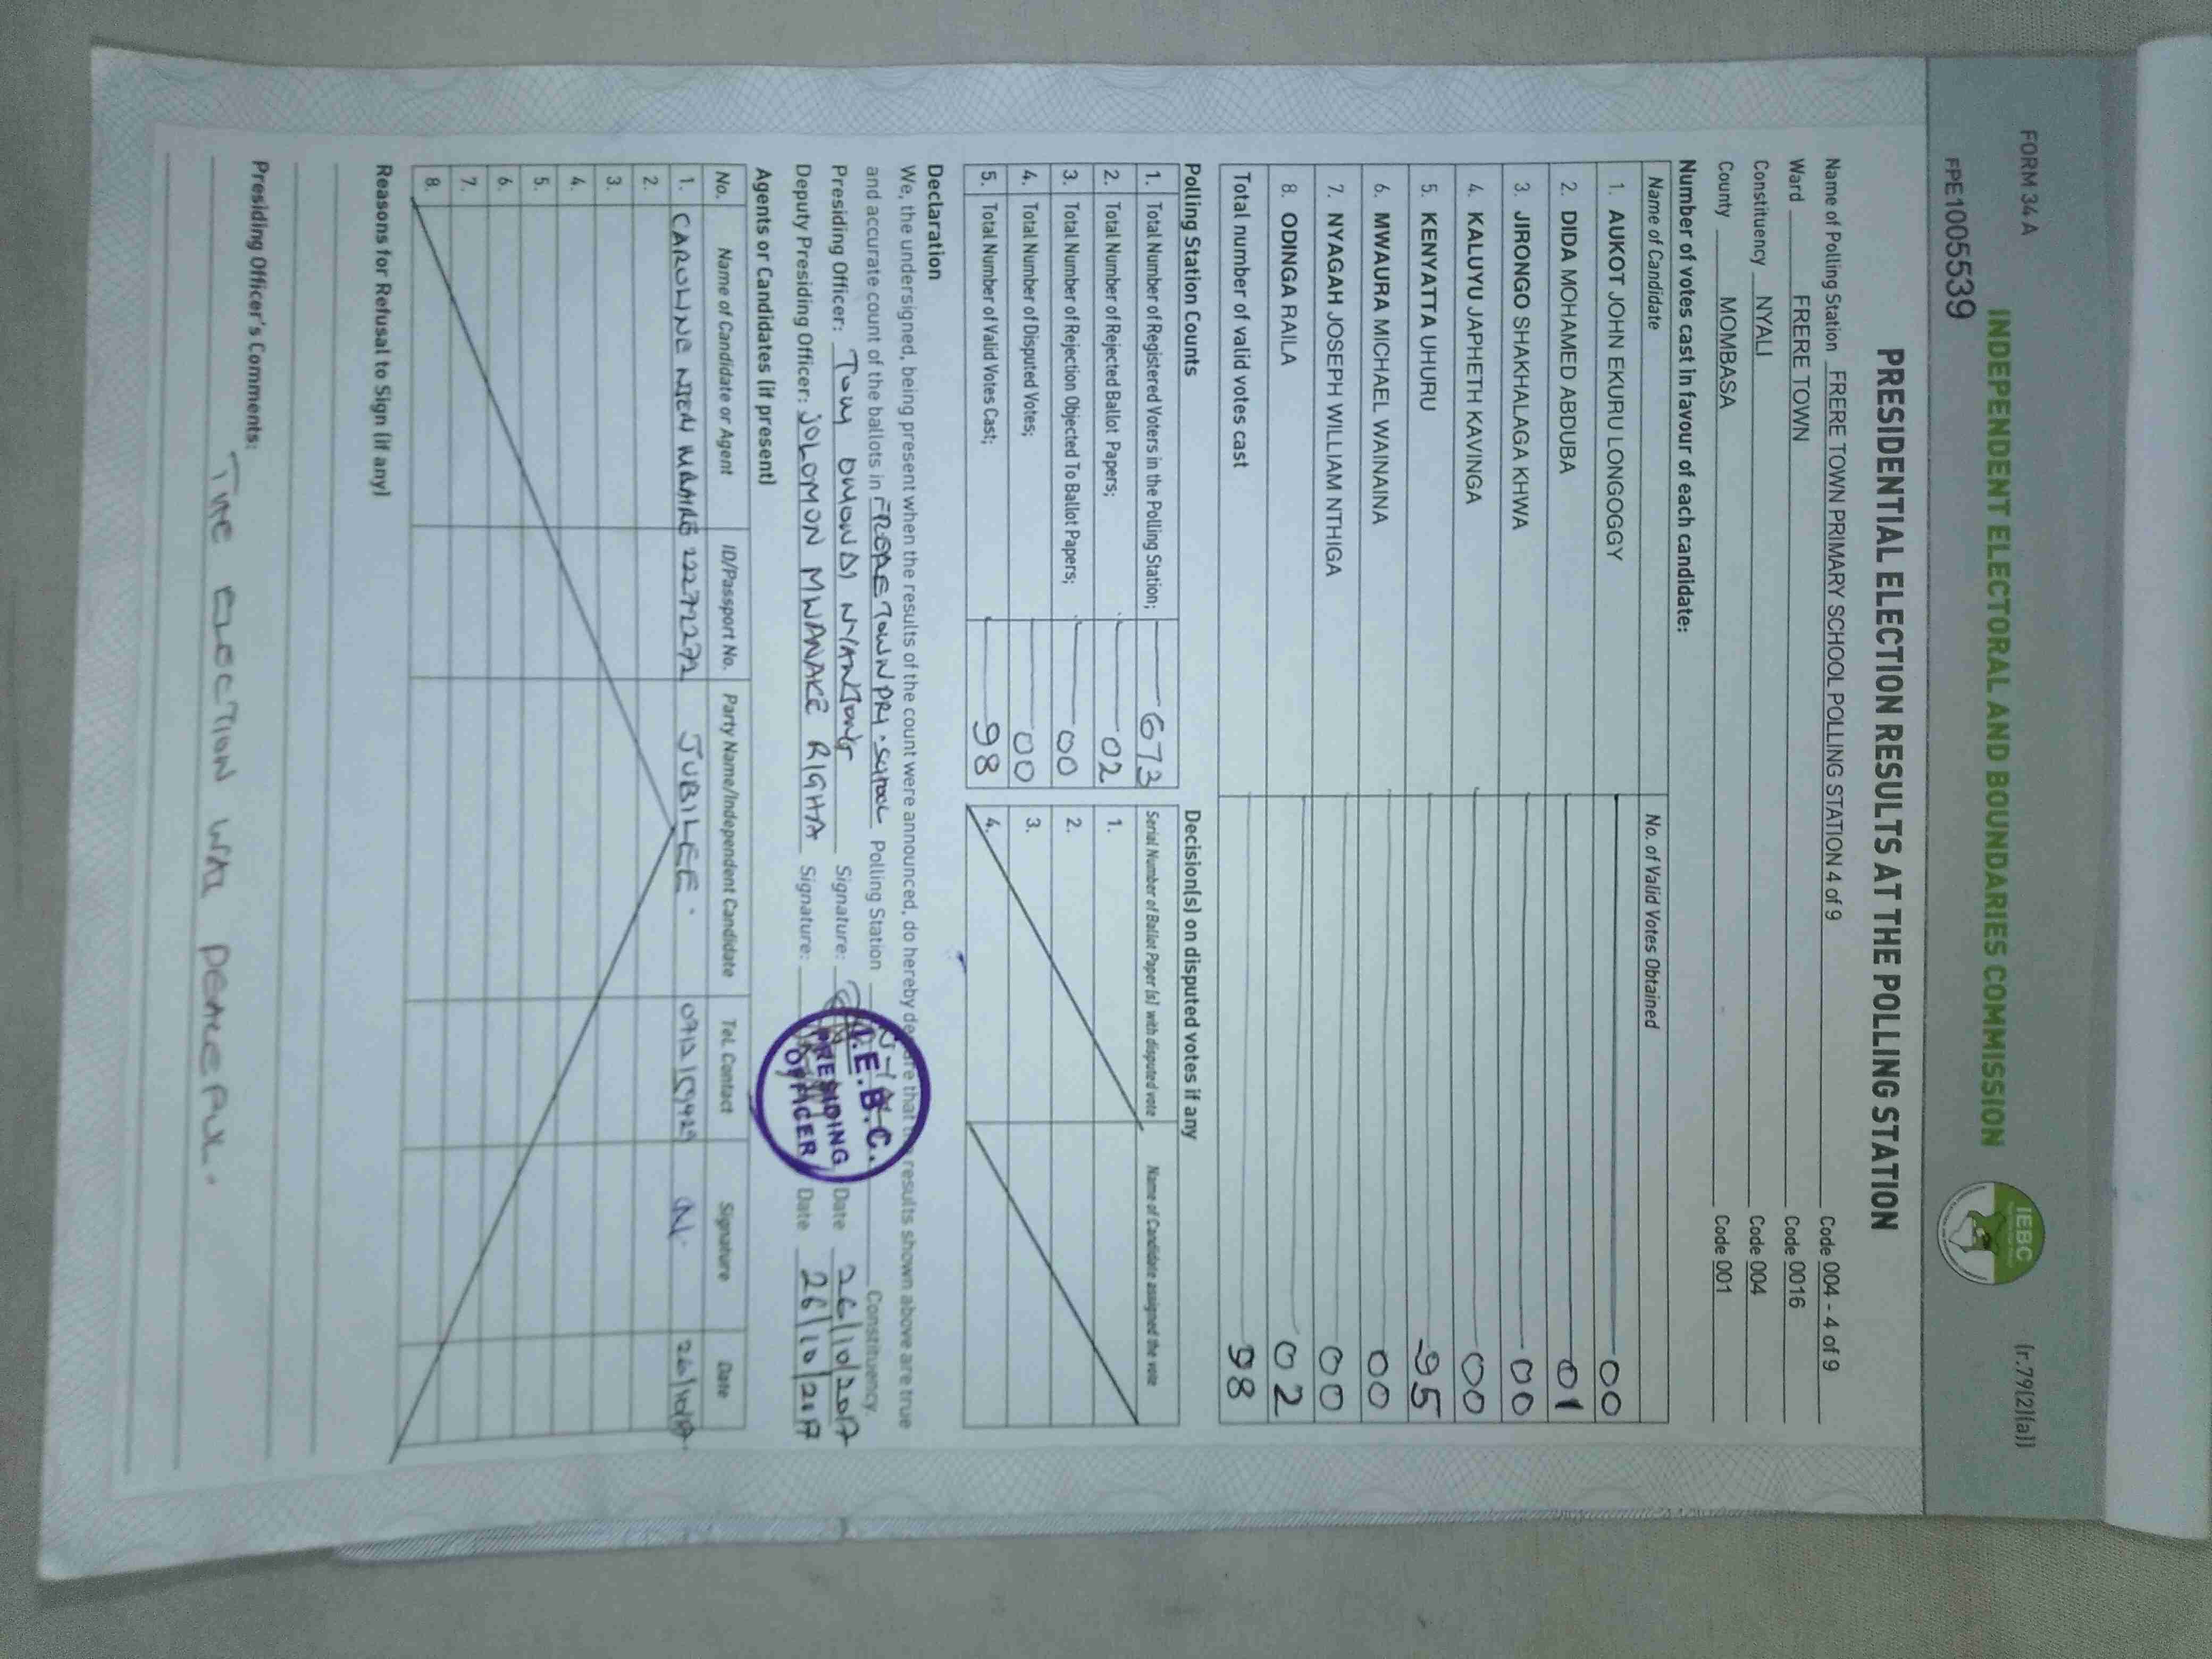 FORM 34 A
(r.79(2)(a))
INDEPENDENT ELECTORAL AND BOUNDARIES COMMISSION
IEBC
FPE1005539
PRESIDENTIAL ELECTION RESULTS AT THE POLLING STATION
Name of Polling Station FRERE TOWN PRIMARY SCHOOL POLLING STATION 4 of 9 Code 004 - 4 of 9
Ward FRERE TOWN Code 0016
Constituency NYALI Code 004
County MOMBASA Code 001
Number of votes cast in favour of each candidate:
Name of Candidate No. of Valid Votes Obtained
1. AUKOT JOHN EKURU LONGOGGY 00
2. DIDA MOHAMED ABDUBA 01
3. JIRONGO SHAKHALAGA KHWA 00
4. KALUYU JAPHETH KAVINGA 00
5. KENYATTA UHURU 95
6. MWAURA MICHAEL WAINAINA 00
7. NYAGAH JOSEPH WILLIAM NTHIGA 00
8. ODINGA RAILA 02
Total number of valid votes cast 98
Polling Station Counts Decision(s) on disputed votes if any
1. Total Number of Registered Voters in the Polling Station; 673 Serial Number of Ballot Paper (s) with disputed vote Name of Candidate assigned the vote
2. Total Number of Rejected Ballot Papers; 02 1.
3. Total Number of Rejection Objected To Ballot Papers; 00 2.
4. Total Number of Disputed Votes; 00 3.
5. Total Number of Valid Votes Cast; 98 4.
Declaration
We, the undersigned, being present when the results of the count were announced, do hereby declare that the results shown above are true
and accurate count of the ballots in TOWN PRI. SCHOOL Polling Station Constituency.
Presiding Officer: TONY OWUONDI Signature: Date 26/10/2017
Deputy Presiding Officer: SOLOMON MWANAKE RIGHA Signature: Date 26/10/2017
I.E.B.C.
PRESIDING
OFFICER
Agents or Candidates (if present)
No. Name of Candidate or Agent ID/Passport No. Party Name/Independent Candidate Tel. Contact Signature Date
1. CAROLYNE 22272272 JUBILEE. 26/10/17
2.
3.
4.
5.
6.
7.
8.
Reasons for Refusal to Sign (if any)
Presiding Officer's Comments:
THE ELECTION WAS PEACEFUL.